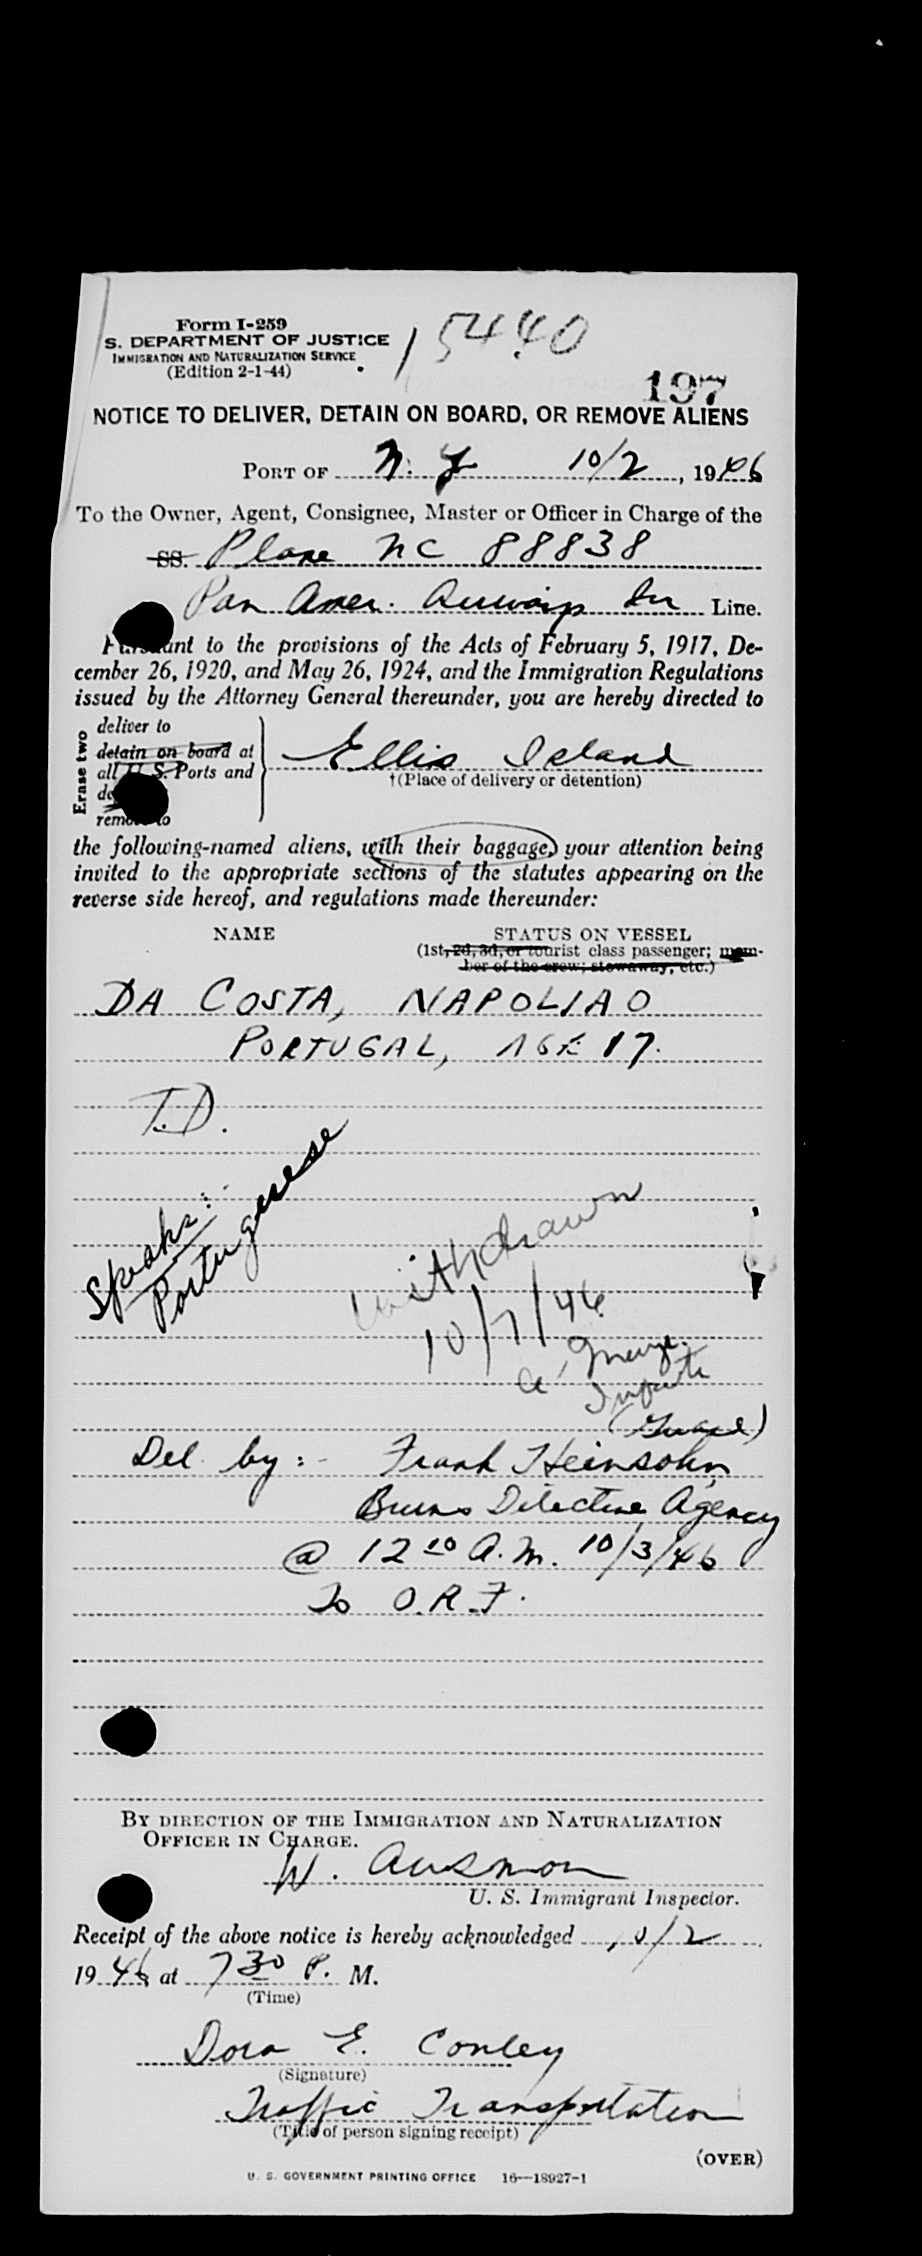 Form I-259
S. DEPARTMENT OF JUSTICE
IMMIGRATION AND NATURALIZATION SERVICE
(Edition 2-1-44)
15440
197
NOTICE TO DELIVER, DETAIN ON BOARD, OR REMOVE ALIENS
PORT OF N. Y. 10/2, 1946
To the Owner, Agent, Consignee, Master or Officer in Charge of the
SS. Plane NC 88838
Pan Amer. Airways Inc Line.
Pursuant to the provisions of the Acts of February 5, 1917, De-
cember 26, 1920, and May 26, 1924, and the Immigration Regulations
issued by the Attorney General thereunder, you are hereby directed to
Erase two
deliver to
detain on board at
all U. S. Ports and
remove to
Ellis Island
†(Place of delivery or detention)
the following-named aliens, with their baggage, your attention being
invited to the appropriate sections of the statutes appearing on the
reverse side hereof, and regulations made thereunder:
NAME STATUS ON VESSEL
(1st, 2d, 3d, or tourist class passenger; mem-
ber of the crew; stowaway, etc.)
DA COSTA, NAPOLIAO
PORTUGAL, AGE 17.
T.D.
Speaks:-
Portuguese
Withdrawn
10/7/46
(Guard)
Del. by:- Frank Heinsohn,
Burns Detective Agency
@ 12 10 A.M. 10/3/46
To O.R.F.
BY DIRECTION OF THE IMMIGRATION AND NATURALIZATION
OFFICER IN CHARGE.
W. Ausmon
U. S. Immigrant Inspector.
Receipt of the above notice is hereby acknowledged 10/2
1946 at 7 30 P. M.
(Time)
Dora E. Conley
(Signature)
Traffic Transportation
(Title of person signing receipt)
(OVER)
U. S. GOVERNMENT PRINTING OFFICE 16—18927-1